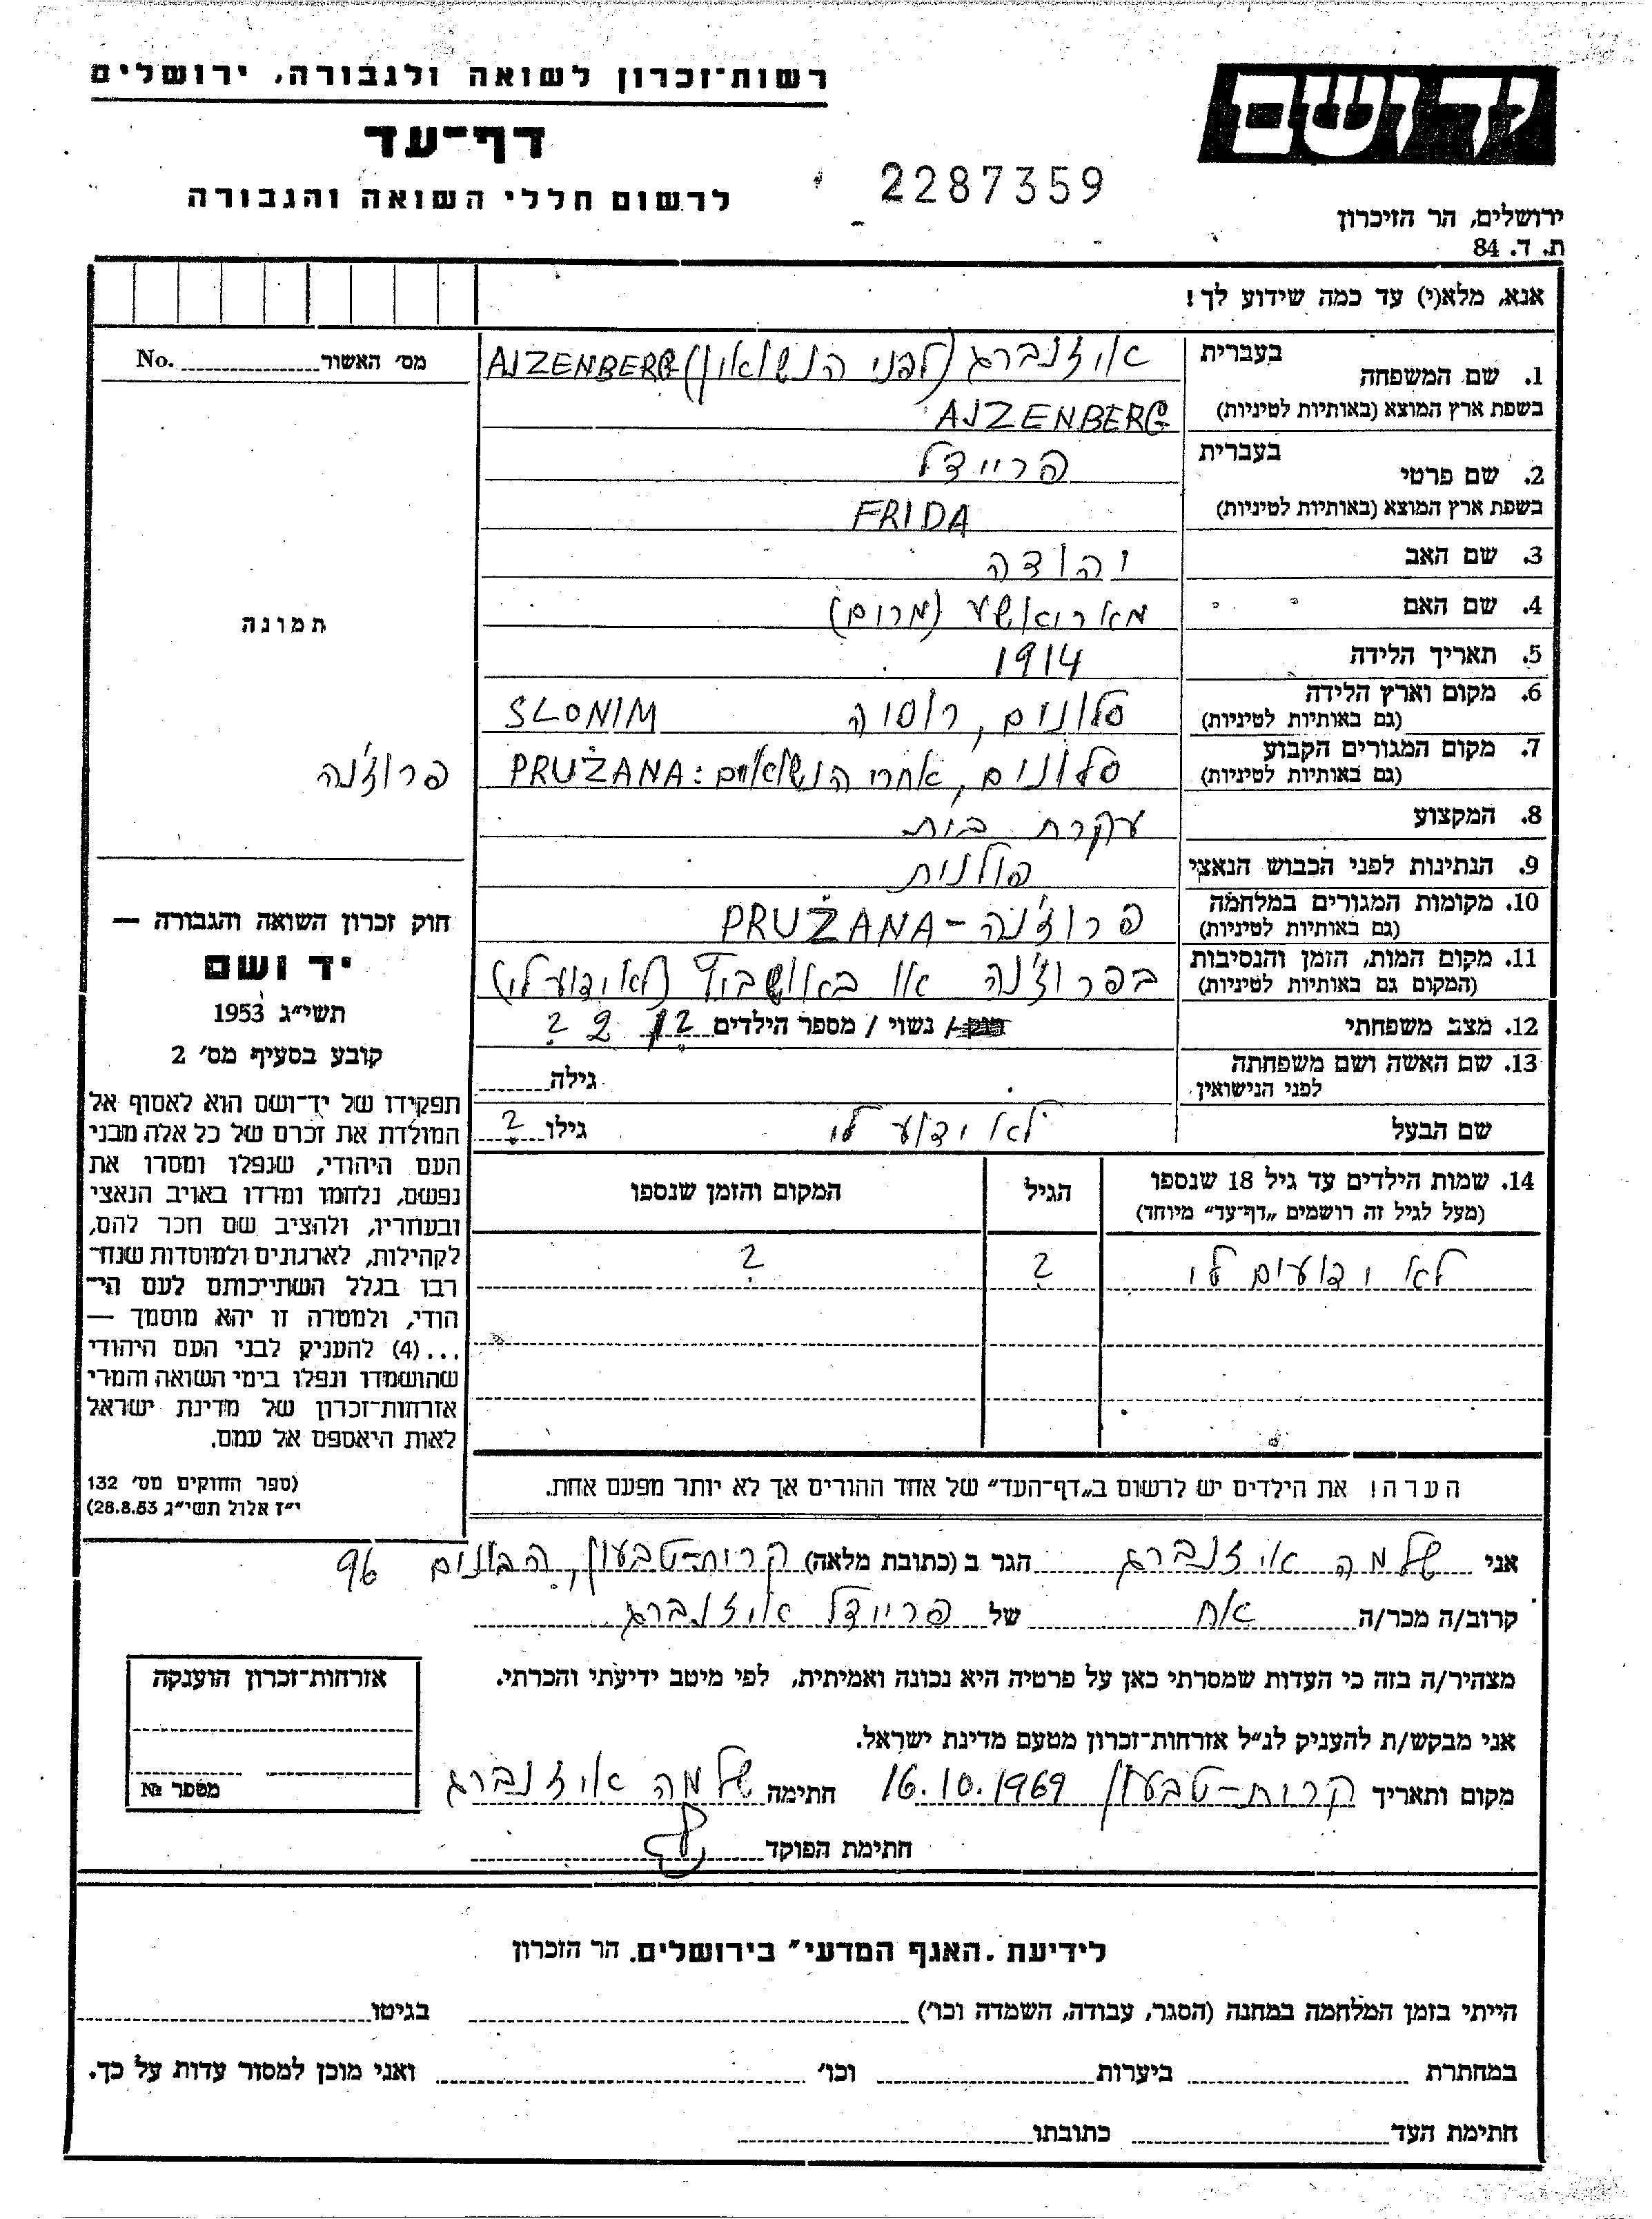 רשות־זכרון לשואה ולגבורה, ירושלים
יד ושם
דף־עד
2287359
לרשום חללי השואה והגבורה
ירושלים, הר הזיכרון
ת. ד. 84
אנא, מלא(י) עד כמה שידוע לך!
מס׳ האשור No.
1. שם המשפחה בעברית איזנברג (לפני הנשואין) AJZENBERG
בשפת ארץ המוצא (באותיות לטיניות) AJZENBERG
2. שם פרטי בעברית פריידל
בשפת ארץ המוצא (באותיות לטיניות) FRIDA
3. שם האב יהודה
4. שם האם מאריאשע (מרים)
תמונה
5. תאריך הלידה 1914
6. מקום וארץ הלידה (גם באותיות לטיניות) סלונים, רוסיה SLONIM
7. מקום המגורים הקבוע (גם באותיות לטיניות) סלונים, אחרי הנשואים: PRUŻANA פרוז'נה
8. המקצוע עקרת בית
9. הנתינות לפני הכבוש הנאצי פולנית
10. מקומות המגורים במלחמה (גם באותיות לטיניות) פרוז'נה - PRUŻANA
11. מקום המות, הזמן והנסיבות (המקום גם באותיות לטיניות) בפרוז'נה או באושביץ (לא ידוע לי)
12. מצב משפחתי / נשוי / מספר הילדים ? 2 ?
13. שם האשה ושם משפחתה לפני הנישואין גילה
שם הבעל לא ידוע לי גילו ?
14. שמות הילדים עד גיל 18 שנספו הגיל המקום והזמן שנספו
(מעל לגיל זה רושמים „דף־עד״ מיוחד)
לא ידועים לי ? ?
הערה! את הילדים יש לרשום ב„דף־העד״ של אחד ההורים אך לא יותר מפעם אחת.
חוק זכרון השואה והגבורה —
יד ושם
תשי״ג 1953
קובע בסעיף מס׳ 2
תפקידו של יד־ושם הוא לאסוף אל
המולדת את זכרם של כל אלה מבני
העם היהודי, שנפלו ומסרו את
נפשם, נלחמו ומרדו באויב הנאצי
ובעוזריו, ולהציב שם וזכר להם,
לקהילות, לארגונים ולמוסדות שנח־
רבו בגלל השתייכותם לעם הי־
הודי, ולמטרה זו יהא מוסמך —
...(4) להעניק לבני העם היהודי
שהושמדו ונפלו בימי השואה והמרי
אזרחות־זכרון של מדינת ישראל
לאות היאספם אל עמם.
(ספר החוקים מס׳ 132
י״ז אלול תשי״ג 28.8.53)
אני שלמה איזנברג הגר ב (כתובת מלאה) קרית-טבעון, הבונים 96
קרוב/ה מכר/ה אח של פריידל איזנברג
מצהיר/ה בזה כי העדות שמסרתי כאן על פרטיה היא נכונה ואמיתית, לפי מיטב ידיעתי והכרתי.
אני מבקש/ת להעניק לנ״ל אזרחות־זכרון מטעם מדינת ישראל.
מקום ותאריך קרית-טבעון 16.10.1969 חתימה שלמה איזנברג
חתימת הפוקד
אזרחות־זכרון הוענקה
מספר №
לידיעת „האגף המדעי״ בירושלים, הר הזכרון
הייתי בזמן המלחמה במחנה (הסגר, עבודה, השמדה וכו׳) בגיטו
במחתרת ביערות וכו׳ ואני מוכן למסור עדות על כך.
חתימת העד כתובתו